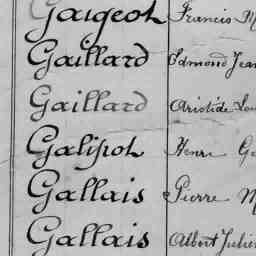 Gaigeot Francis M
Gaillard Edmond Jean
Gaillard Aristide Lou
Galipot Henri G
Gallais Pierre M
Gallais Albert Julien